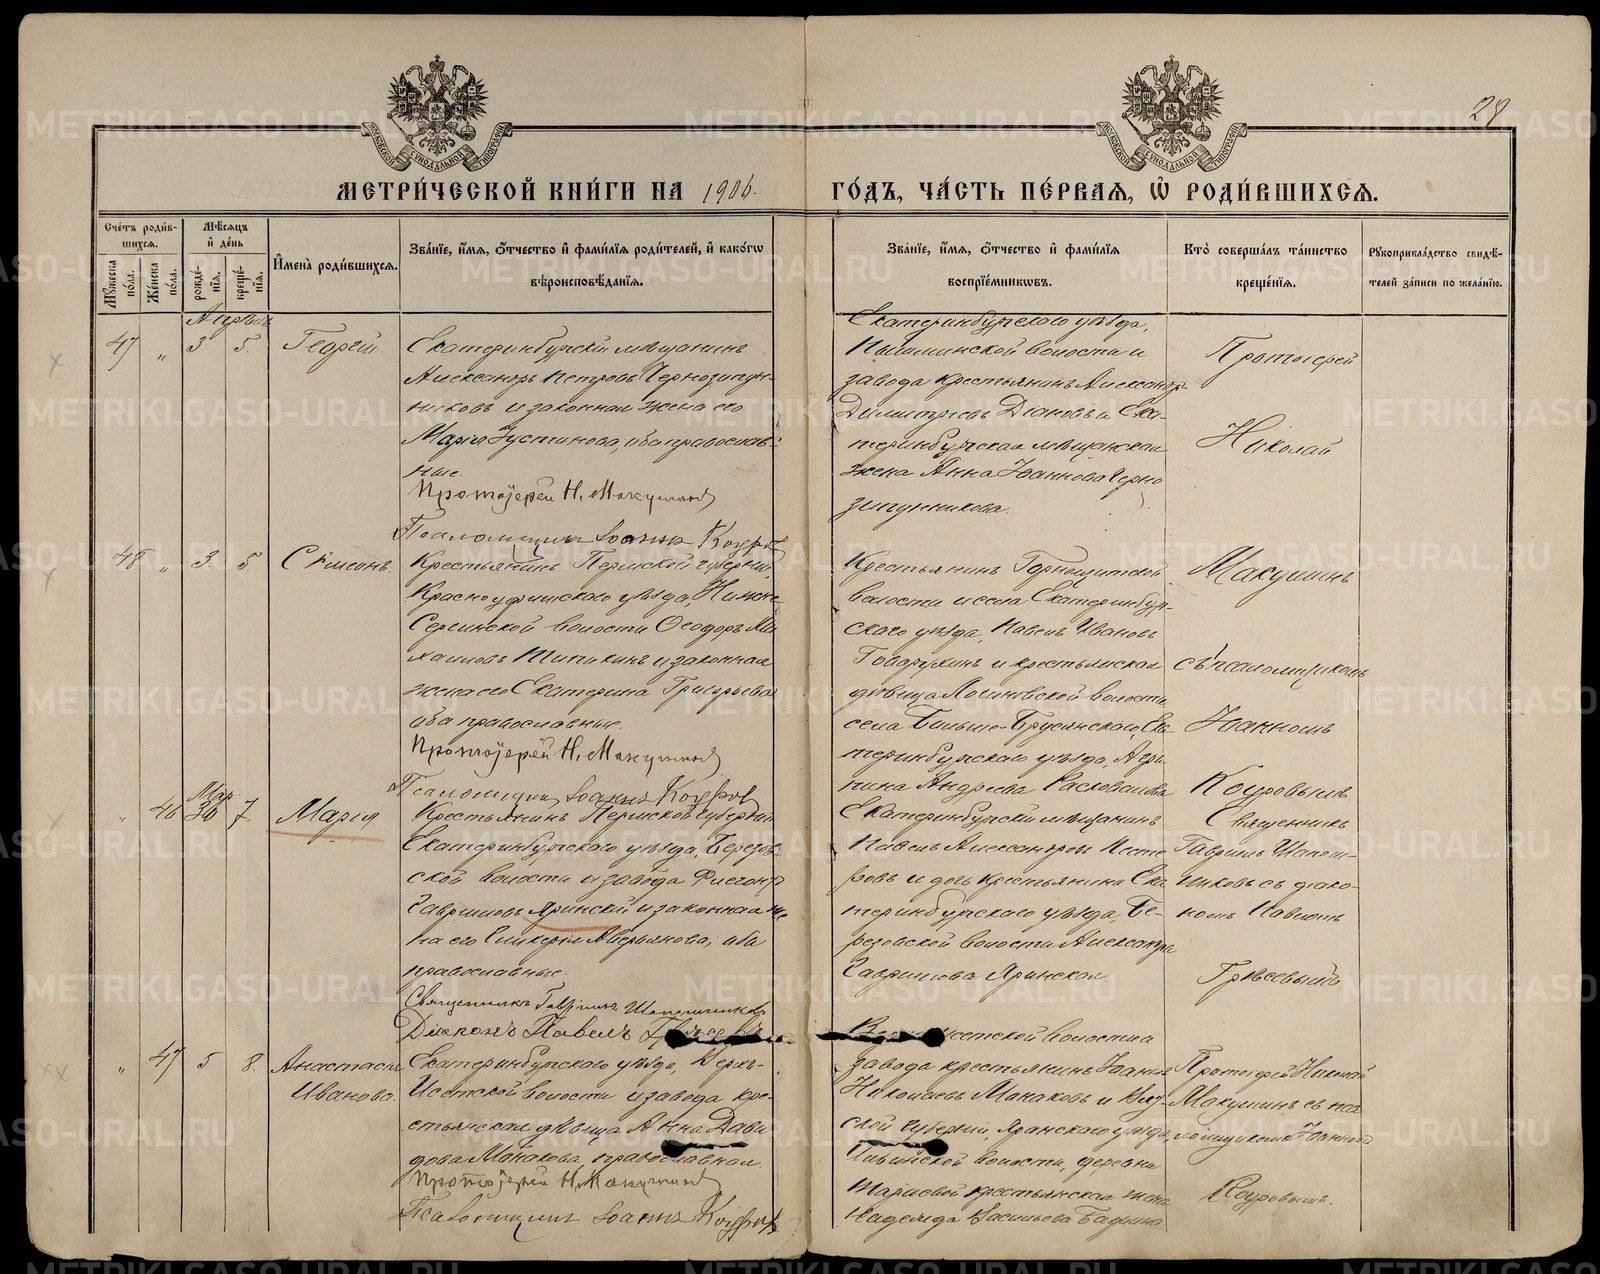 28
МЕТРИ́ЧЕСКОЙ КНИ́ГИ НА 1906. ГО́ДЪ, ЧА́СТЬ ПЕ́РВАЯ, Ѡ҆ РОДИ́ВШИХСЯ.
Сче́тъ роди́в-
шихся.
Мꙋ́жеска по́ла.
Же́нска по́ла.
Мѣ́сяцъ
и҆ де́нь
рожде́-
нїя.
креще́-
нїя.
И҆мена̀ роди́вшихся.
Зва́нїе, и҆́мя, ѻ҆́тчество и҆ фами́лїя роди́телей, и҆ како́гѡ
вѣроисповѣ́данїя.
Зва́нїе, и҆́мя, ѻ҆́тчество и҆ фами́лїя
воспрїе́мникѡвъ.
Кто̀ соверша́лъ та́инство
креще́нїя.
Рꙋкоприкла́дство свидѣ́-
телей за́писи по жела́нїю.
Апрѣль
47 " 3 5. Георгій
Екатеринбургскій мѣщанинъ
Александръ Петровъ Чернозипун-
никовъ и законная жена его
Марія Іустинова, оба православ-
ные
Протоіерей Н. Макушинъ
Псаломщикъ Іоаннъ Коуровъ
Екатеринбургскаго уѣзда,
Пышминской волости и
завода крестьянинъ Александръ
Димитріевъ Діановъ и Ека-
теринбургская мѣщанская
жена Анна Іоаннова Черно
зипунникова.
Протоіерей
Николай
48 " 3. 5. Сѵмеонъ.
Крестьянинъ Пермской губерніи,
Красноуфимскаго уѣзда, Нижне-
Сергинской волости Ѳеодоръ Ми
хаиловъ Шипикинъ и законная
жена его Екатерина Григорьева
оба православные.
Протоіерей Н. Макушинъ
Псаломщикъ Іоаннъ Коуровъ
Крестьянинъ Горнощитской
волости и села Екатеринбург-
скаго уѣзда, Павелъ Ивановъ
и крестьянская
дѣвица Логиновской волости
села Больше-Брусянскаго, Ека
теринбургскаго уѣзда, Агри
пина Андреева
Макушинъ
съ псаломщикомъ
Іоанномъ
Коуровымъ.
" 46 Мар 30 7. Марія.
Крестьянинъ Пермской губерніи
Екатеринбургскаго уѣзда, Березов
ской волости и завода Флегонтъ
Гавриловъ Яринскій и законная же
на его Гликерія Аверьянова, оба
православные.
Священникъ Гавріилъ Шапошниковъ
Діаконъ Павелъ
Екатеринбургскій мѣщанинъ
Павелъ Александровъ Пет
ровъ и дочь крестьянина Ека
теринбургскаго уѣзда, Бе-
резовской волости Александра
Гаврилова Яринская.
Священникъ
Гавріилъ Шапош-
никовъ съ діако-
номъ Павломъ
" 47 5 8. Анастасія
Иванова.
Екатеринбургскаго уѣзда, Верхъ-
Исетской волости и завода кре-
стьянская дѣвица Анна Дави
дова Манакова, православная.
Протоіерей Н. Макушинъ
Псаломщикъ Іоаннъ Коуровъ
исетской волости и
завода крестьянинъ Іоаннъ
Николаевъ Манаковъ и Вят-
ской губерніи, Яранскаго уѣзда,
Ильинской волости, деревни
крестьянская жена
Надежда Васильева
Протоіерей Николай
Макушинъ съ пса
ломщикомъ Іоанномъ
Коуровымъ.
METRIKI.GASO-URAL.RU